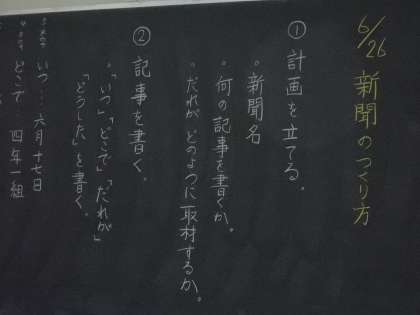 6/26 新聞のつくり方
① 計画を立てる。
・新聞名
・何の記事を書くか。
・だれが どのように取材するか。
② 記事を書く。
・「いつ」「どこで」「だれが」
「どうした」を書く。
いつ…六月十七日
どこで…四年一組